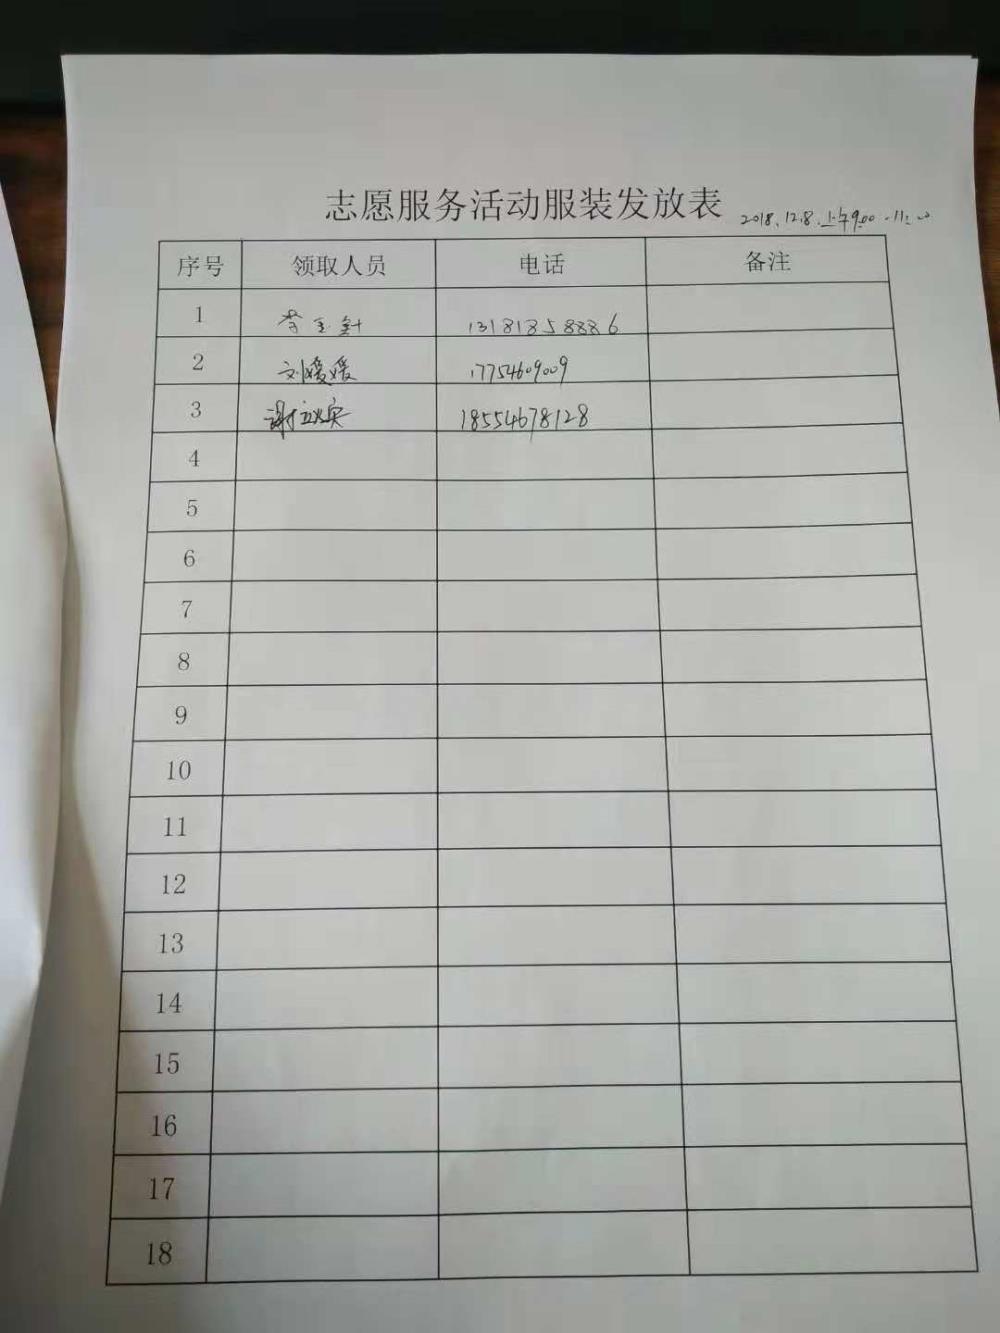 志愿服务活动服装发放表
2018.12.8.上午9:00-11:00
序号 领取人员 电话 备注
1 13181858886
2 刘媛媛 17754609009
3 18554678128
4
5
6
7
8
9
10
11
12
13
14
15
16
17
18